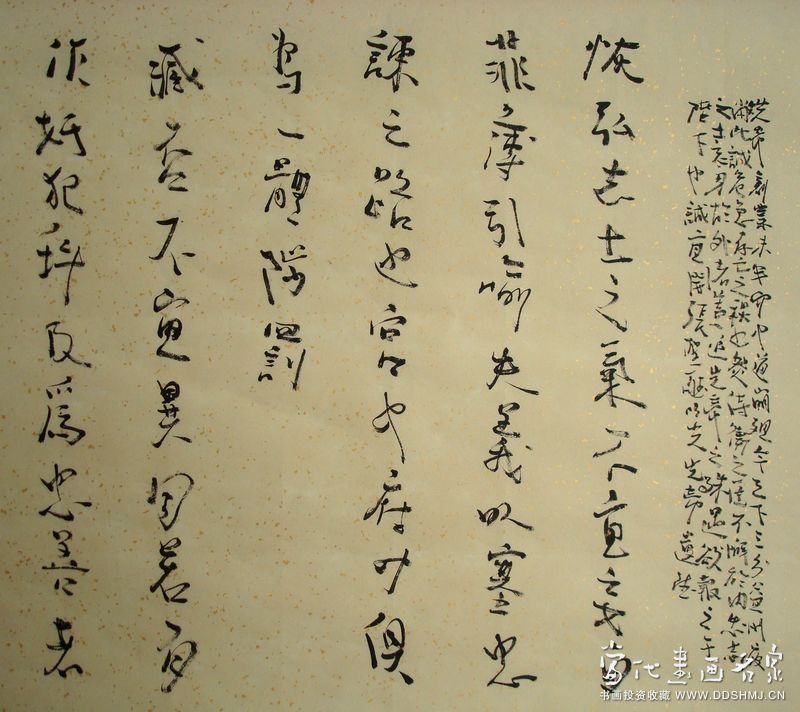 先帝創業未半而中道崩殂今天下三分益州疲
弊此誠危急存亡之秋也然侍衛之臣不懈於內忠志
之士忘身於外者蓋追先帝之殊遇欲報之于
陛下也誠宜開張聖聽以光先帝遺德
恢弘志士之氣不宜妄自
菲薄引喻失義以塞忠
諫之路也宮中府中俱
為一體陟罰
臧否不宜異同若有
作奸犯科及為忠善者
当代书画名家
书画投资收藏 WWW.DDSHMJ.CN